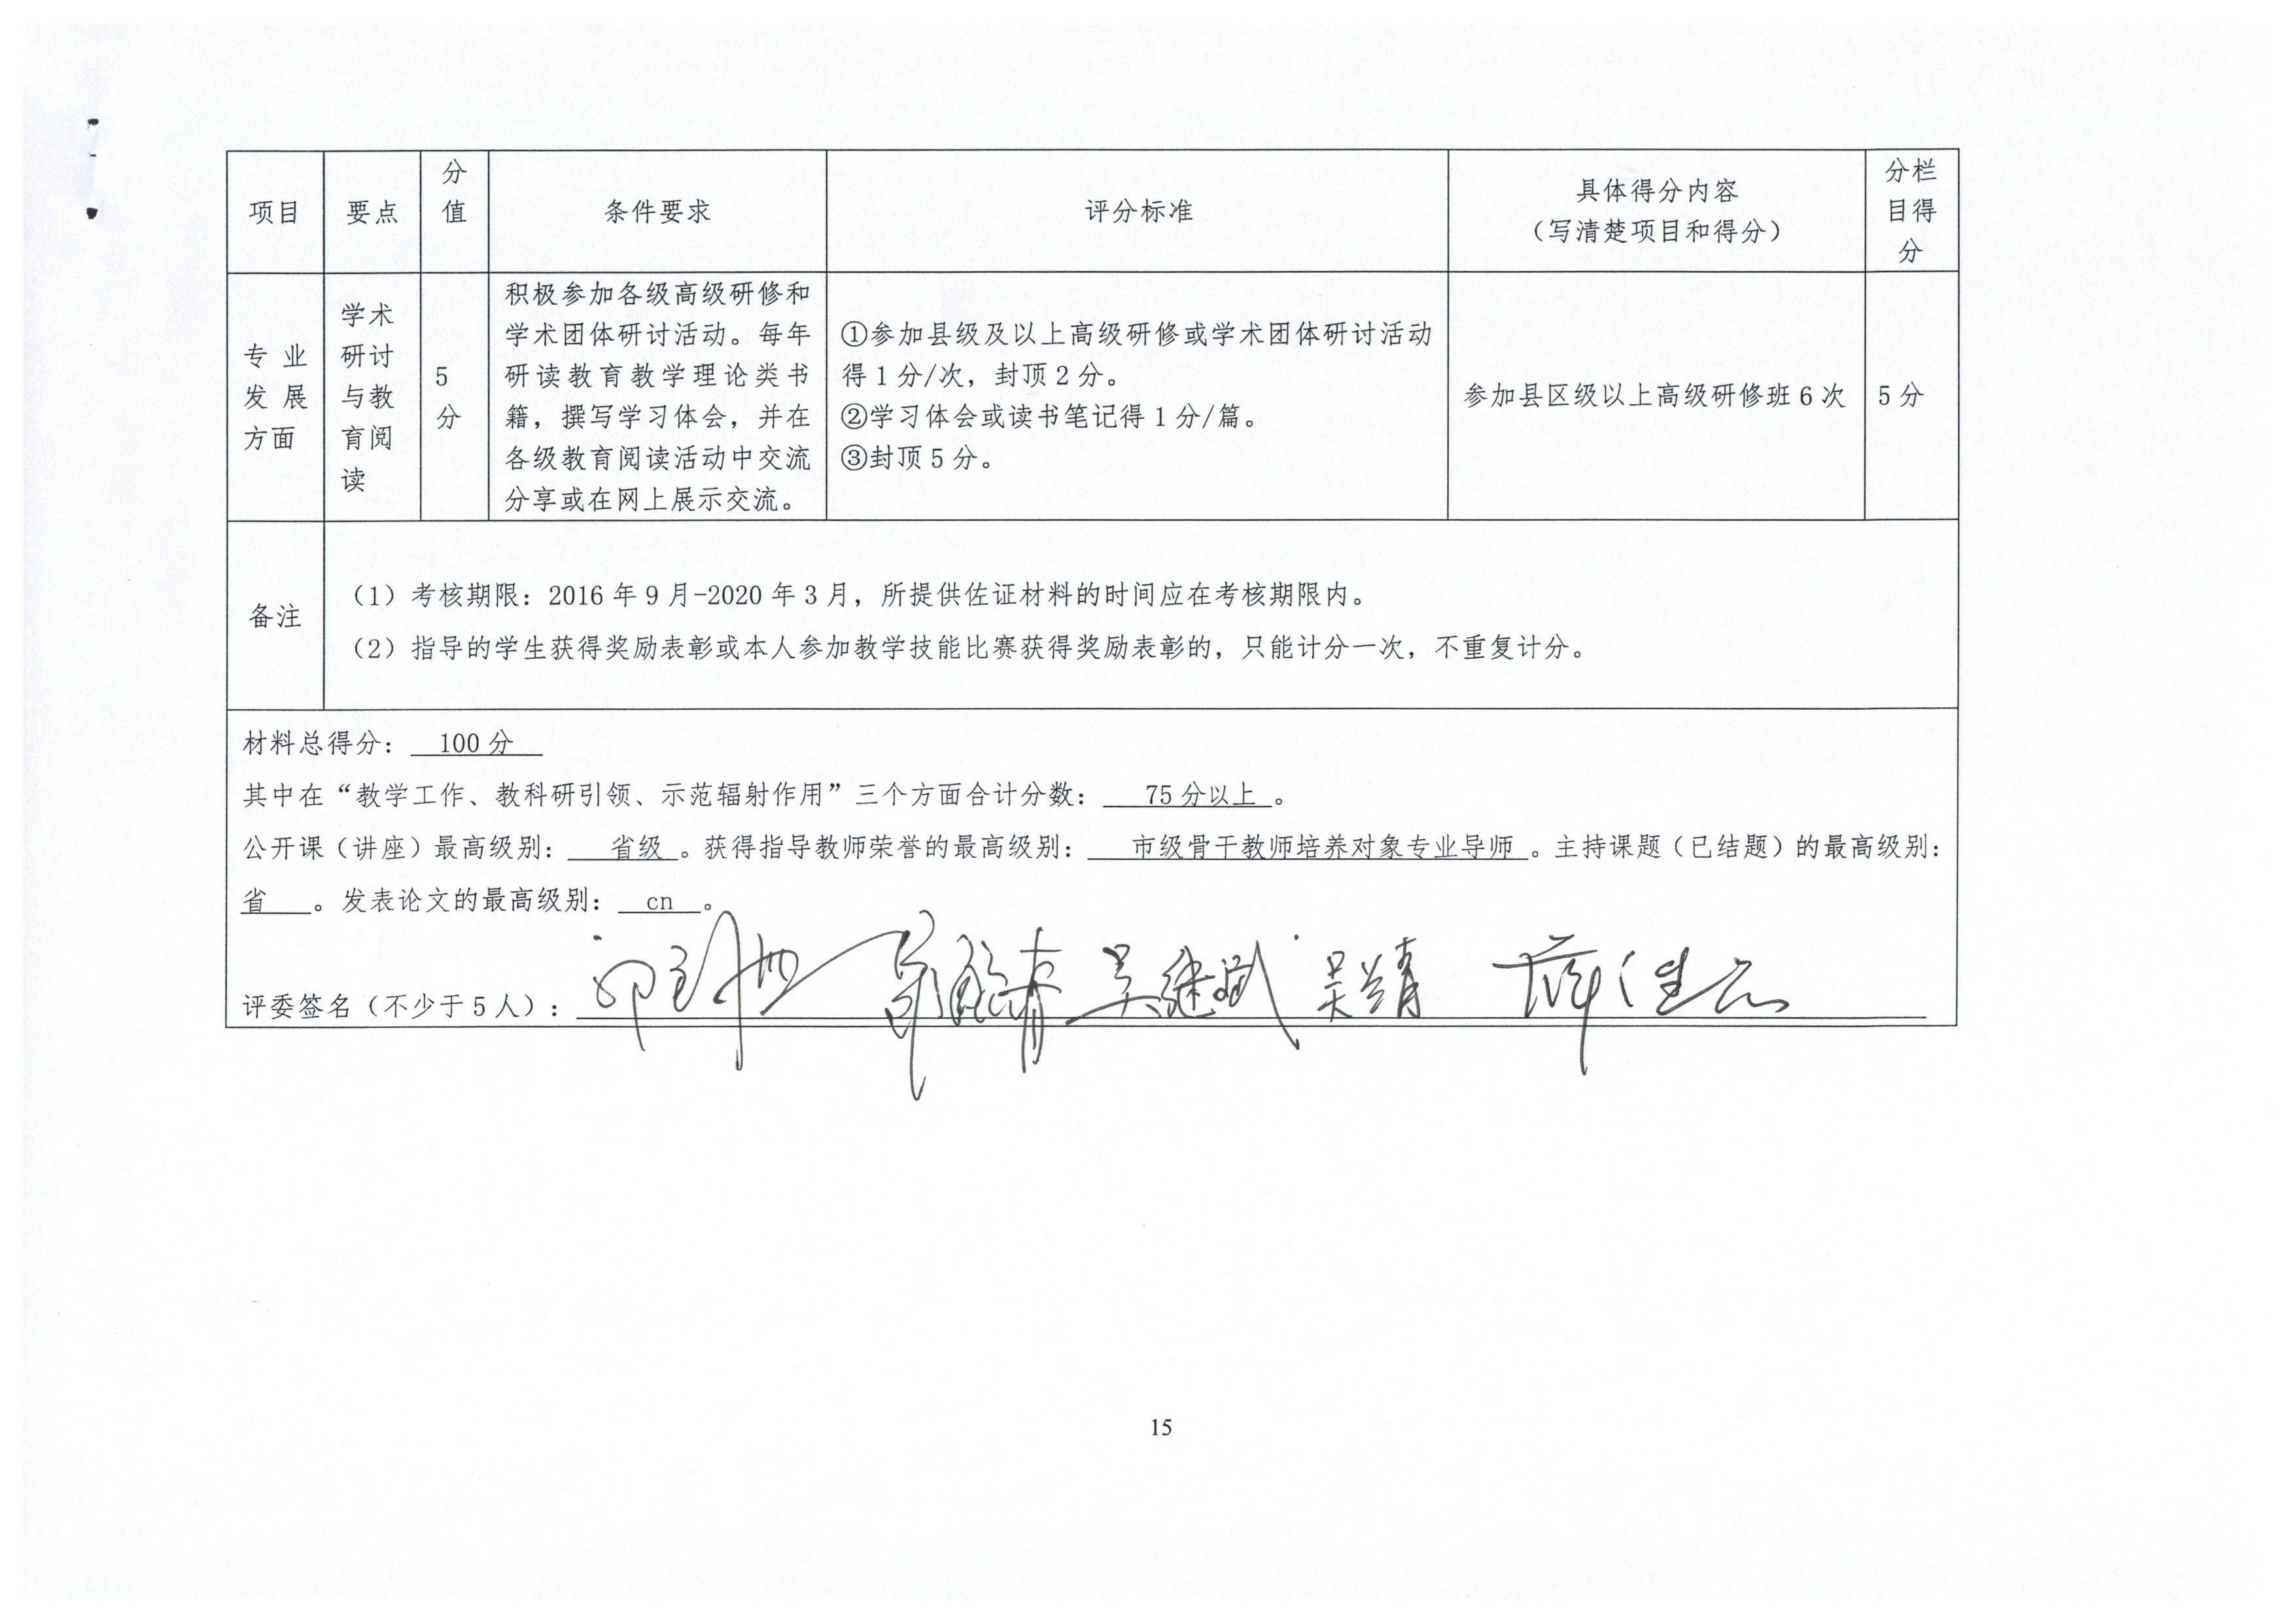 项目 要点 分值 条件要求 评分标准 具体得分内容（写清楚项目和得分） 分栏目得分
专业发展方面
学术研讨与教育阅读
5分
积极参加各级高级研修和
学术团体研讨活动。每年
研读教育教学理论类书
籍，撰写学习体会，并在
各级教育阅读活动中交流
分享或在网上展示交流。
①参加县级及以上高级研修或学术团体研讨活动
得1分/次，封顶2分。
②学习体会或读书笔记得1分/篇。
③封顶5分。
参加县区级以上高级研修班6次
5分
备注
（1）考核期限：2016年9月-2020年3月，所提供佐证材料的时间应在考核期限内。
（2）指导的学生获得奖励表彰或本人参加教学技能比赛获得奖励表彰的，只能计分一次，不重复计分。
材料总得分：100分
其中在“教学工作、教科研引领、示范辐射作用”三个方面合计分数：75分以上。
公开课（讲座）最高级别：省级。获得指导教师荣誉的最高级别：市级骨干教师培养对象专业导师。主持课题（已结题）的最高级别：
省。发表论文的最高级别：cn。
评委签名（不少于5人）：吴继斌 吴靖
15